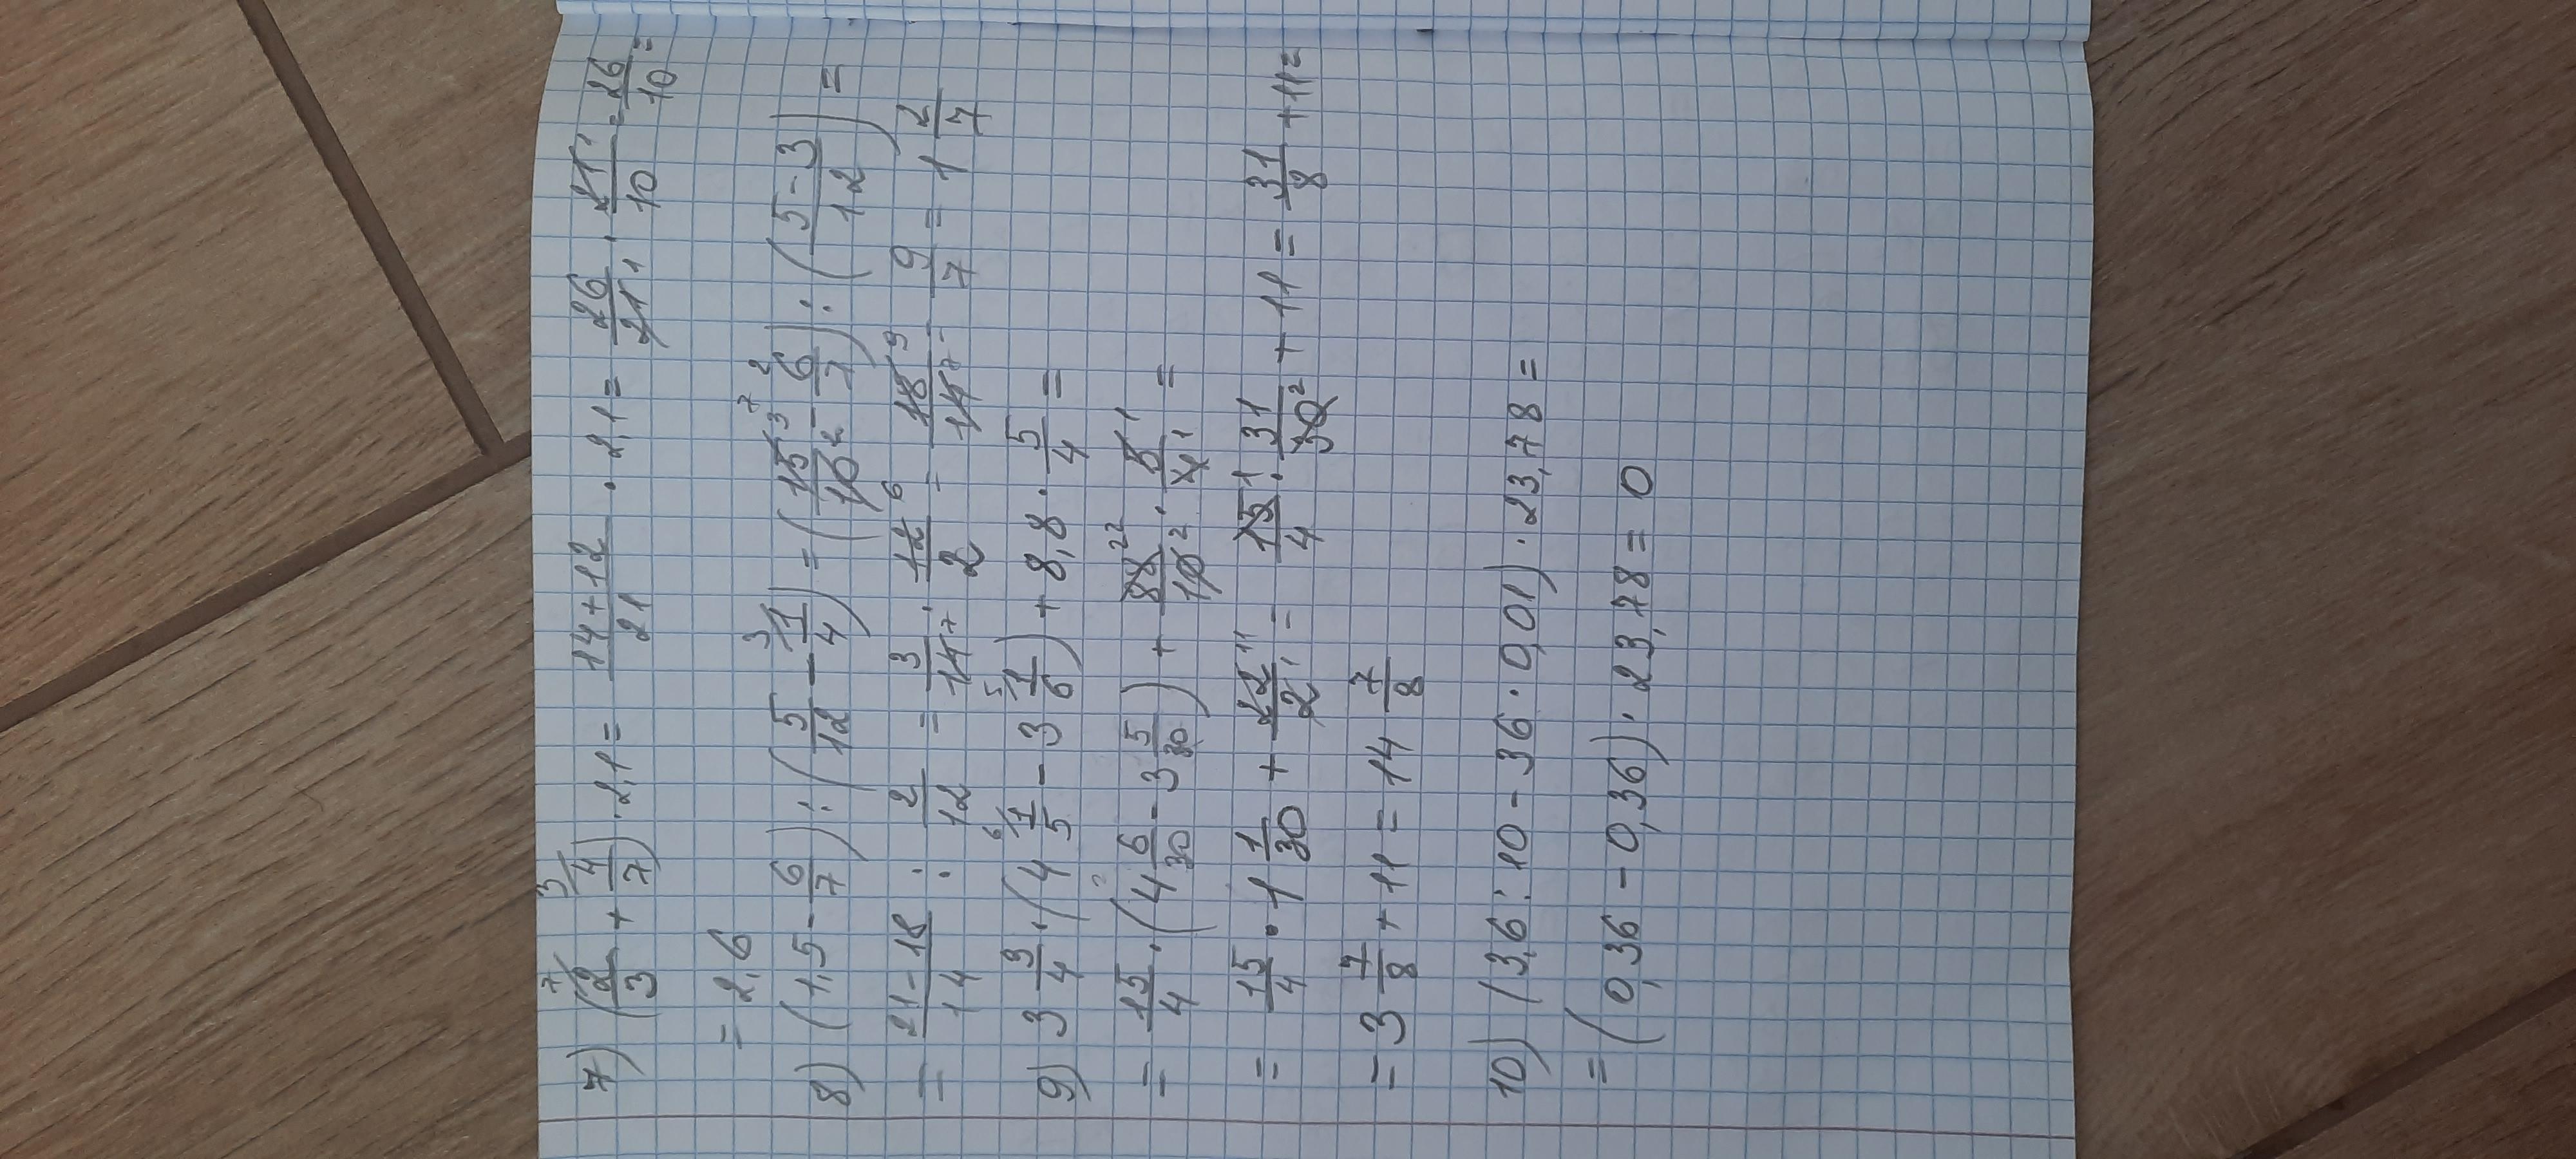 7) (2/3 + 4/7) · 2,1 = 14+12/21 · 2,1 = 26/21 · 21/10 = 26/10 =
= 2,6
8) (1,5 - 6/7) : (5/12 - 1/4) = (15/10 - 6/7) : (5-3/12) =
= 21-18/14 : 2/12 = 3/14 · 12/2 = 18/14 = 9/7 = 1 2/7
9) 3 3/4 · (4 1/5 - 3 1/6) + 8,8 · 5/4 =
= 15/4 · (4 6/30 - 3 5/30) + 88/10 · 5/4 =
= 15/4 · 1 1/30 + 22/2 = 15/4 · 31/30 + 11 = 31/8 + 11 =
= 3 7/8 + 11 = 14 7/8
10) (3,6 : 10 - 36 · 0,01) · 23,78 =
= (0,36 - 0,36) · 23,78 = 0